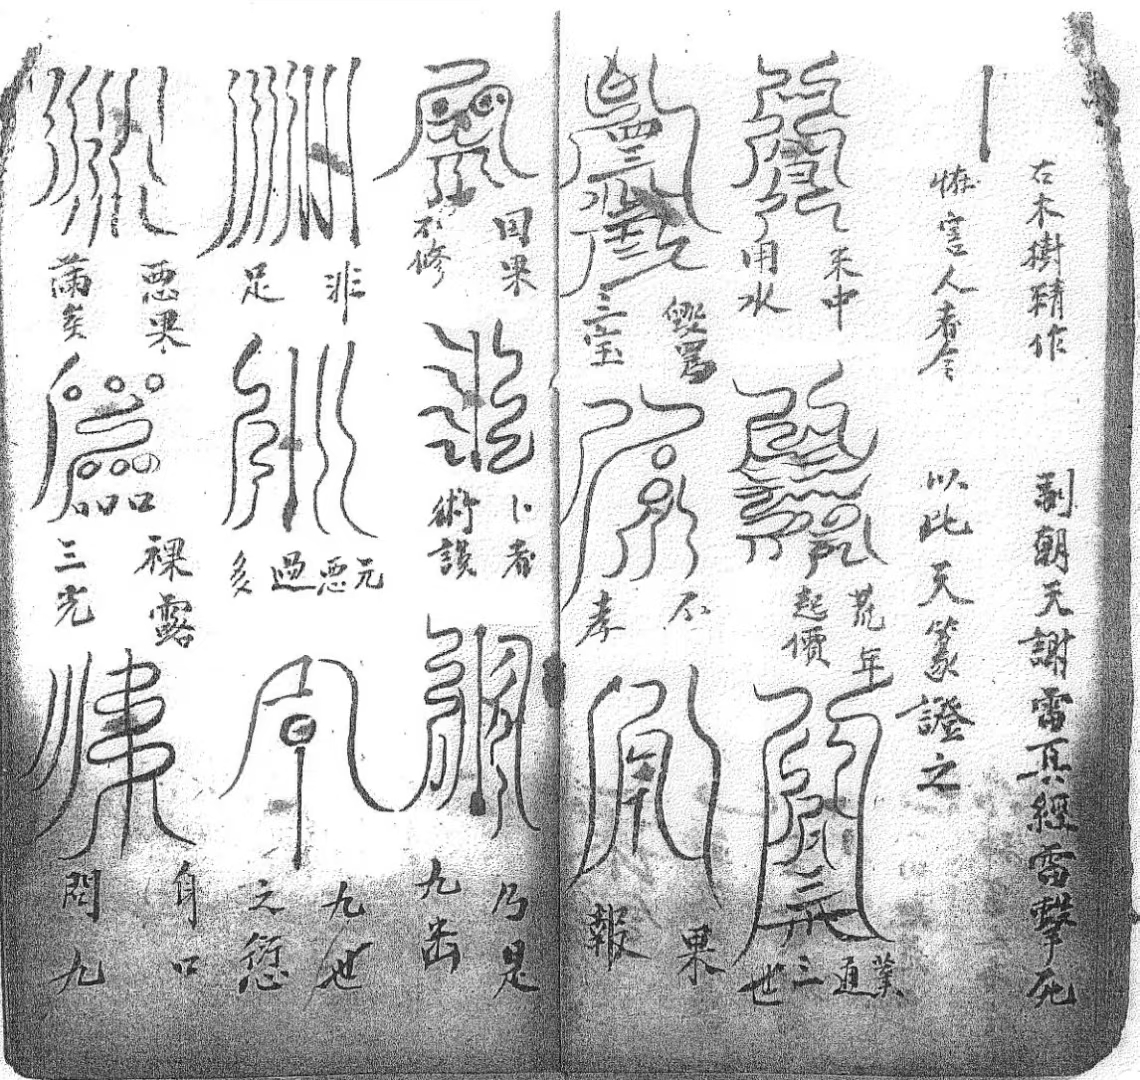 右木樹精作
朝天謝雷真經雷擊死
怪害人者令
以此天篆證之
米中
用水
荒年
起價
業通三世
毀罵
三宝
不
孝
果
報
因果
不修
卜者
術誤
乃是
九幽
非
足
元惡過多
九世
之愆
惡果
滿矣
裸露
三光
身口
問九